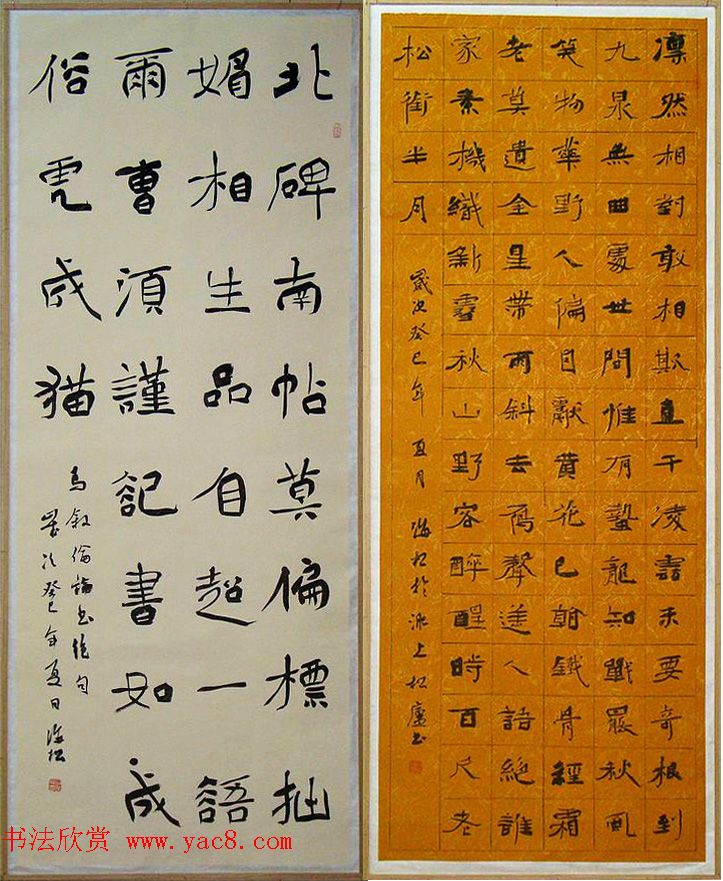 北碑南帖莫偏標拙
媚相生品自超一語
爾曹須謹記書如成
俗虎成猫
馬敘倫論書絕句
歲次癸巳年夏日海松
凜然相對敢相欺直干凌雲未要奇根到
九泉無曲處世間惟有蟄龍知戰罷秋風
笑物華野人偏自獻黃花已翰鐵骨經霜
老莫遺全星帶雨斜去雁聲遙人語絕誰
家素機織新雪秋山野客醉醒時百尺老
松銜半月
歲次癸巳年夏月海松於滬上松廬書
书法欣赏 www.yac8.com